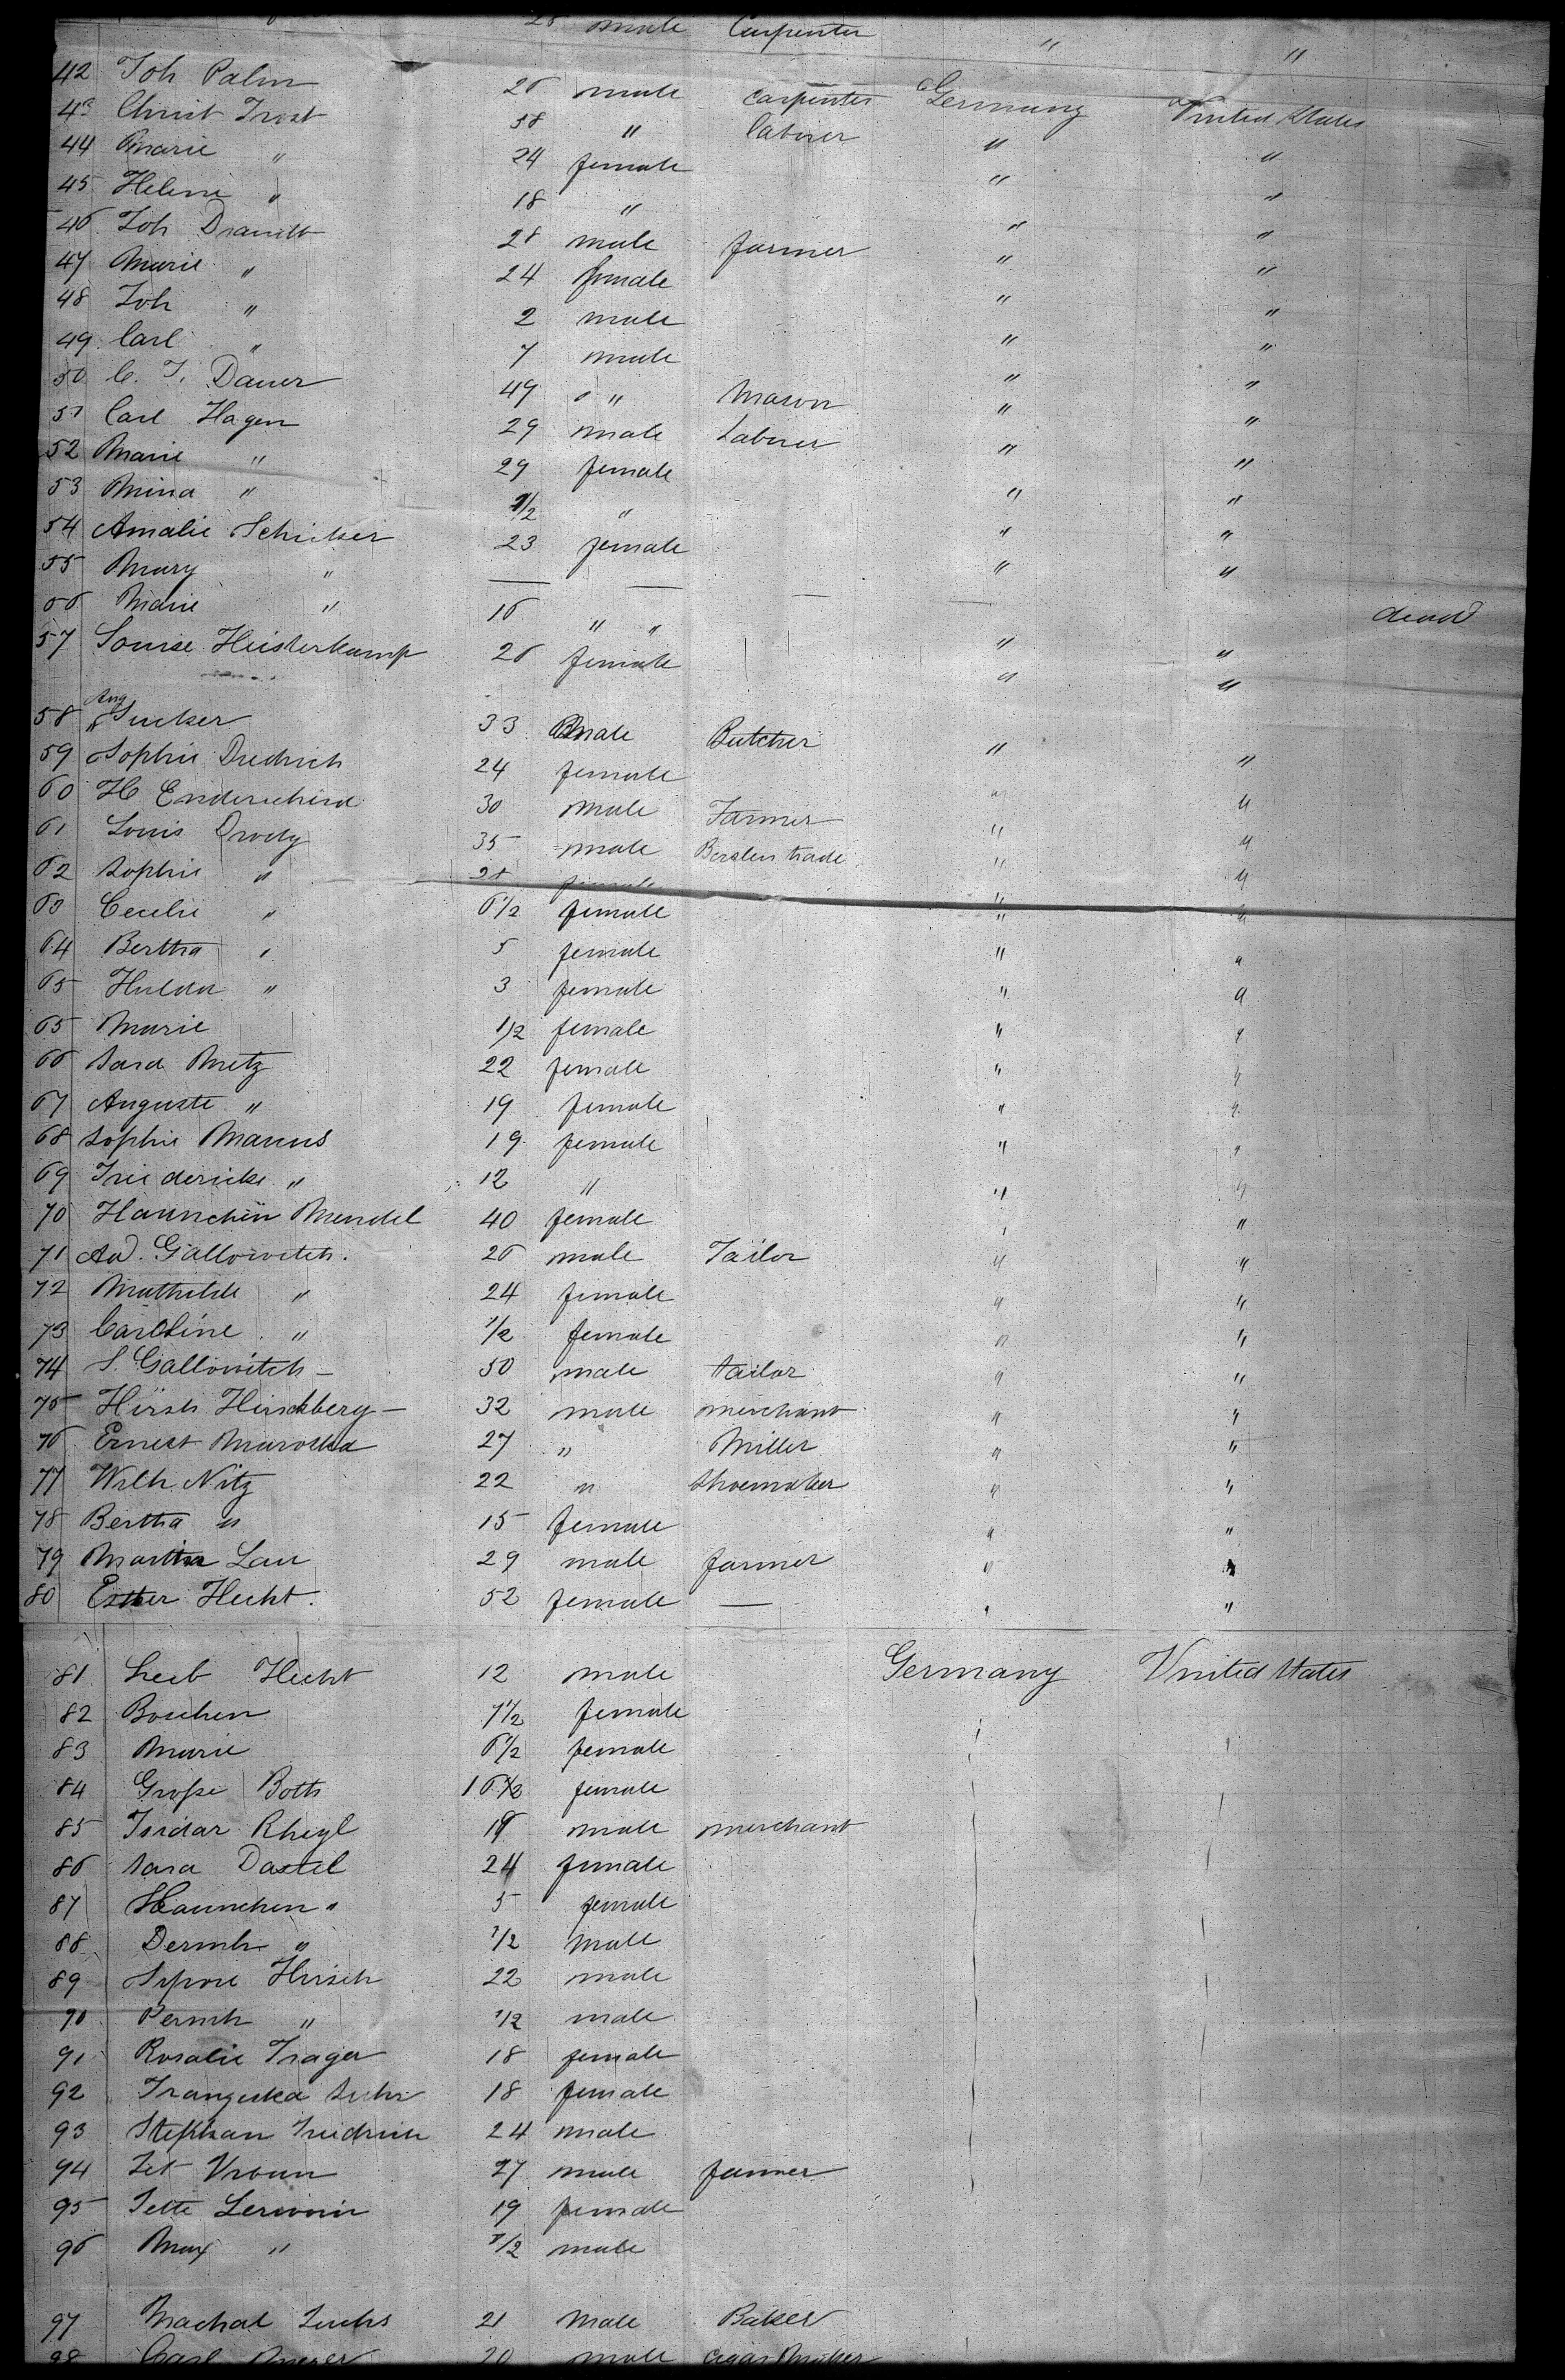 28 male Carpenter " "
42 Joh Palm 26 male Carpenter Germany United States
43 Christ Trost 38 " laborer " "
44 Marie " 24 female " "
45 Helene " 18 " " "
46 Joh Brandt 28 male farmer " "
47 Marie " 24 female " "
48 Joh " 2 male " "
49 Carl " 7 male " "
50 C. F. Dauer 49 " Mason " "
51 Carl Hagen 29 male Laborer " "
52 Marie " 29 female " "
53 Mina " 1/2 " " "
54 Amalie 23 female " "
55 Mary " — — — — dead
56 Marie " 16 " " " "
57 Louise Heisterkamp 26 female " "
58 Aug 33 male Butcher " "
59 Sophie Diedrich 24 female
60 H 30 male Farmer " "
61 Louis 35 male trade " "
62 Sophie " female " "
63 Cecelie " 6 1/2 female " "
64 Bertha " 5 female " "
65 Hulda " 3 female " "
65 Marie 1/2 female " "
66 Sara Metz 22 female " "
67 Auguste " 19 female " "
68 Sophie Marcus 19 female " "
69 Friedericke " 12 " " "
70 Hannchen Mendel 40 female " "
71 Ad. Gallowitch. 26 male Tailor " "
72 Mathilde " 24 female " "
73 Caroline " 1/2 female " "
74 S. Gallowitch — 50 male tailor " "
75 Hirsh Hirschberg — 32 male merchant " "
76 Ernest 27 " Miller " "
77 Wilh. Nitz 22 " Shoemaker " "
78 Bertha " 15 female " "
79 Martin Lau 29 male farmer " "
80 Esther Hecht. 52 female — " "
81 Leib Hecht 12 male Germany United States
82 7 1/2 female
83 Marie 6 1/2 female
84 Große Both 16 1/2 female
85 Isidar 19 male merchant
86 Sara Dastel 24 female
87 Hannchen " 5 female
88 " 1/2 male
89 Hirsch 22 male
90 " 1/2 male
91 Rosalie Trager 18 female
92 18 female
93 Stephan Friedrich 24 male
94 27 male farmer
95 Jette 19 female
96 Max " 1/2 male
97 Machal Fuchs 21 Male Baker
98 Carl 20 male cigar Maker